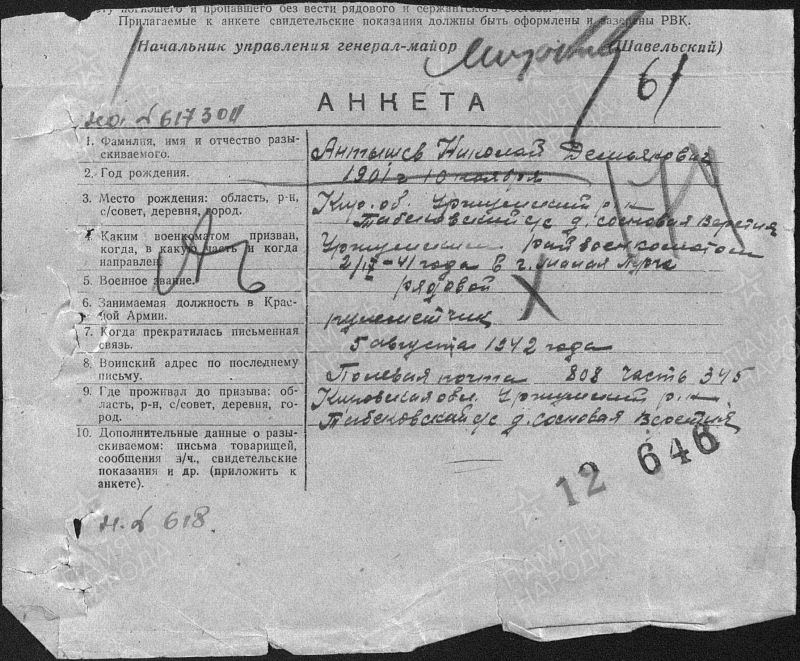 погибшего и пропавшего без вести рядового и сержантского состава.
Прилагаемые к анкете свидетельские показания должны быть оформлены и заверены РВК.
Начальник управления генерал-майор (Шавельский)
61
АНКЕТА
617300
1. Фамилия, имя и отчество разыскиваемого. Антышев Николай Демьянович
2. Год рождения. 1901 г 10 ноября
3. Место рождения: область, р-н, с/совет, деревня, город. Кир. об. Уржумский р-н
Табековский с/с д. сосновая Веретия
4. Каким военкоматом призван, когда, в какую часть и когда направлен. Уржумским райвоенкоматом
-41 года в г. малая Пурга
5. Военное звание. рядовой
6. Занимаемая должность в Красной Армии. пулеметчик
7. Когда прекратилась письменная связь. 5 августа 1942 года
8. Воинский адрес по последнему письму. Полевая почта 808 часть 345
9. Где проживал до призыва: область, р-н, с/совет, деревня, город. Кировская обл. Уржумский р-н
Табековский с/с д. сосновая Веретия
10. Дополнительные данные о разыскиваемом: письма товарищей, сообщения в/ч., свидетельские показания и др. (приложить к анкете).
12 646
618
ПАМЯТЬ НАРОДА